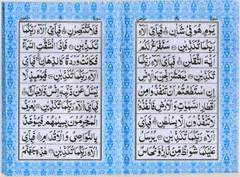 يَوْمٍ هُوَ فِي شَأْنٍ فَبِأَيِّ اٰلَآءِ
رَبِّكُمَا تُكَذِّبٰنِ سَنَفْرُغُ لَكُمْ
اَيُّهَ الثَّقَلٰنِ فَبِأَيِّ اٰلَآءِ رَبِّكُمَا
تُكَذِّبٰنِ يٰمَعْشَرَ الْجِنِّ وَالْاِنْسِ
اِنِ اسْتَطَعْتُمْ اَنْ تَنْفُذُوْا مِنْ
اَقْطَارِ السَّمٰوٰتِ وَالْاَرْضِ فَانْفُذُوْا
لَا تَنْفُذُوْنَ اِلَّا بِسُلْطٰنٍ فَبِأَيِّ
اٰلَآءِ رَبِّكُمَا تُكَذِّبٰنِ يُرْسَلُ
عَلَيْكُمَا شُوَاظٌ مِّنْ نَّارٍ وَّنُحَاسٌ
فَلَا تَنْتَصِرٰنِ فَبِأَيِّ اٰلَآءِ رَبِّكُمَا
تُكَذِّبٰنِ فَاِذَا انْشَقَّتِ السَّمَآءُ
فَكَانَتْ وَرْدَةً كَالدِّهَانِ فَبِأَيِّ
اٰلَآءِ رَبِّكُمَا تُكَذِّبٰنِ فَيَوْمَئِذٍ لَّا
يُسْئَلُ عَنْ ذَنْبِهٖ اِنْسٌ وَّلَا جَآنٌّ
فَبِأَيِّ اٰلَآءِ رَبِّكُمَا تُكَذِّبٰنِ يُعْرَفُ
الْمُجْرِمُوْنَ بِسِيْمٰهُمْ فَيُؤْخَذُ
بِالنَّوَاصِيْ وَالْاَقْدَامِ فَبِأَيِّ
اٰلَآءِ رَبِّكُمَا تُكَذِّبٰنِ هٰذِهٖ جَهَنَّمُ